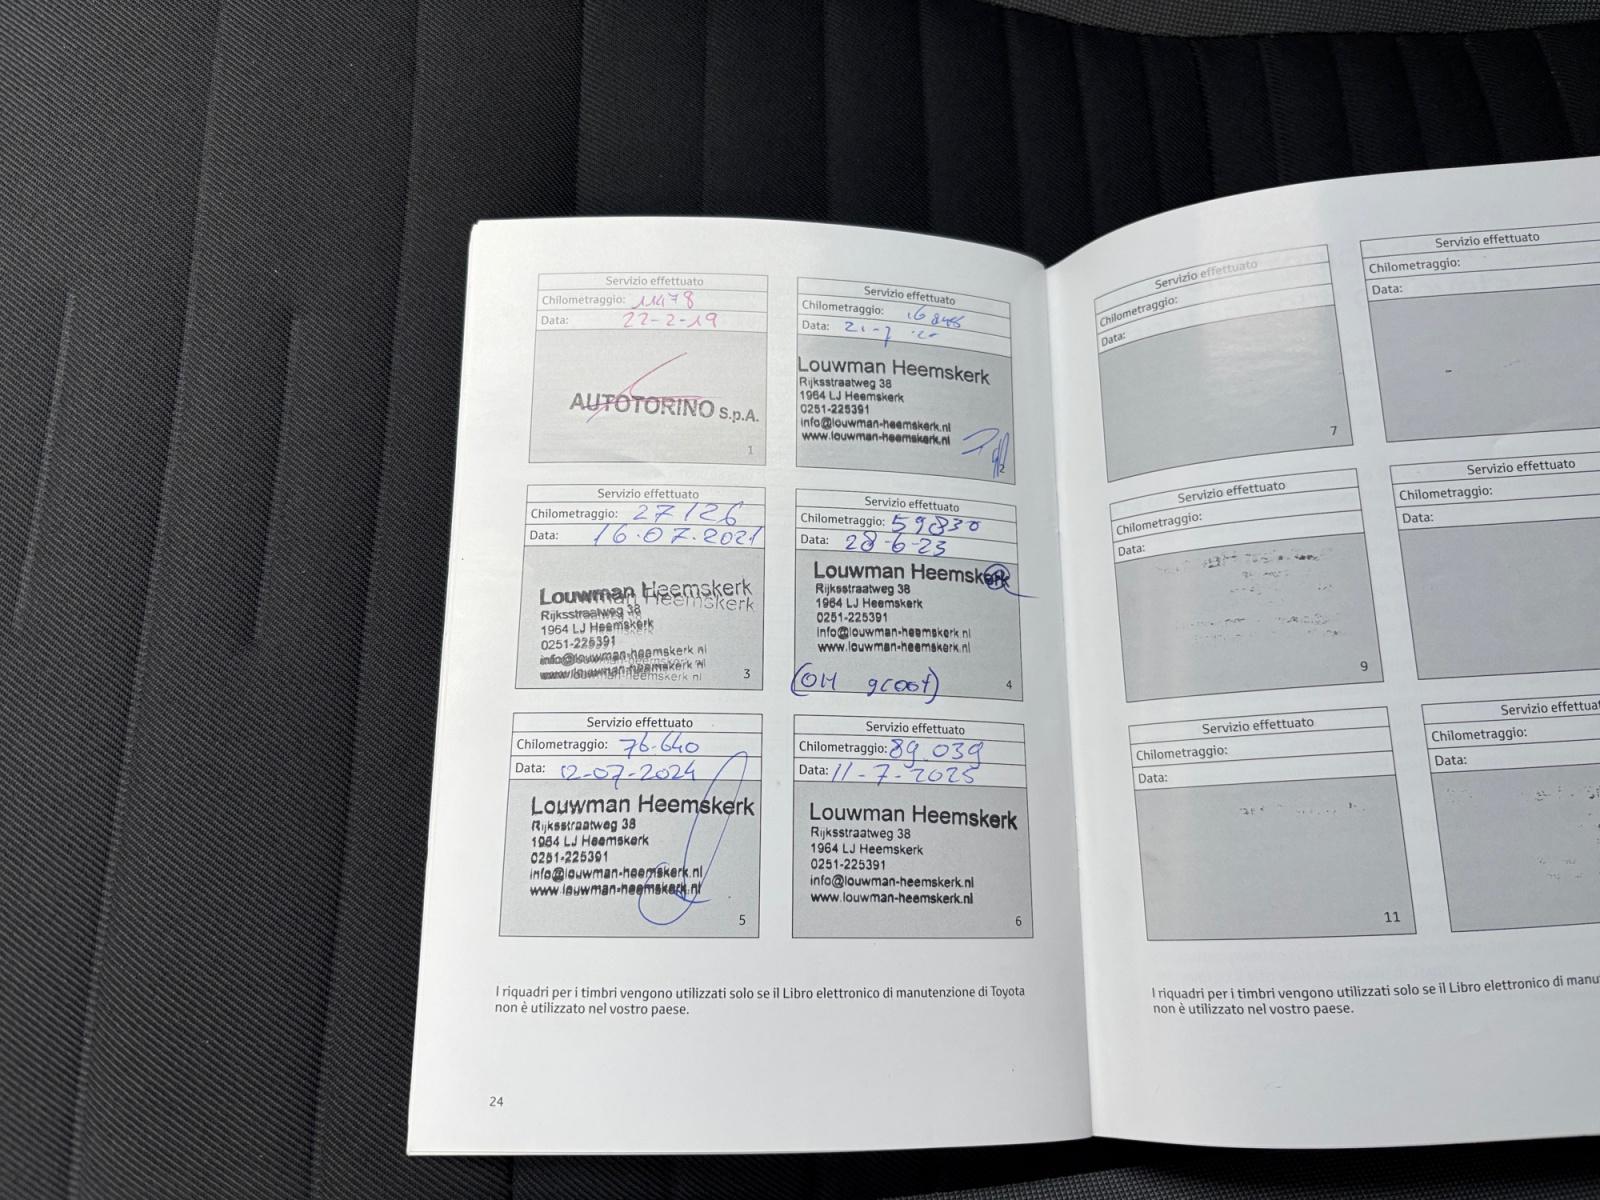 Servizio effettuato
Chilometraggio: 11478
Data: 22-2-19
AUTOTORINO S.p.A.
1
Servizio effettuato
Chilometraggio:
Data:
Louwman Heemskerk
Rijksstraatweg 38
1964 LJ Heemskerk
0251-225391
info@louwman-heemskerk.nl
www.louwman-heemskerk.nl
2
Servizio effettuato
Chilometraggio: 27126
Data: 16.07.2021
Louwman Heemskerk
Rijksstraatweg 38
1964 LJ Heemskerk
0251-225391
info@louwman-heemskerk.nl
www.louwman-heemskerk.nl
3
Servizio effettuato
Chilometraggio: 59830
Data: 28-6-23
Louwman Heemskerk
Rijksstraatweg 38
1964 LJ Heemskerk
0251-225391
info@louwman-heemskerk.nl
www.louwman-heemskerk.nl
(OH groot)
4
Servizio effettuato
Chilometraggio: 76.640
Data: 12-07-2024
Louwman Heemskerk
Rijksstraatweg 38
1964 LJ Heemskerk
0251-225391
info@louwman-heemskerk.nl
www.louwman-heemskerk.nl
5
Servizio effettuato
Chilometraggio: 89.039
Data: 11-7-2025
Louwman Heemskerk
Rijksstraatweg 38
1964 LJ Heemskerk
0251-225391
info@louwman-heemskerk.nl
www.louwman-heemskerk.nl
6
I riquadri per i timbri vengono utilizzati solo se il Libro elettronico di manutenzione di Toyota
non è utilizzato nel vostro paese.
24
Servizio effettuato
Chilometraggio:
Data:
7
Servizio effettuato
Chilometraggio:
Data:
Servizio effettuato
Chilometraggio:
Data:
9
Servizio effettuato
Chilometraggio:
Data:
Servizio effettuato
Chilometraggio:
Data:
11
Servizio effettuat
Chilometraggio:
Data:
I riquadri per i timbri vengono utilizzati solo se il Libro elettronico di manu
non è utilizzato nel vostro paese.